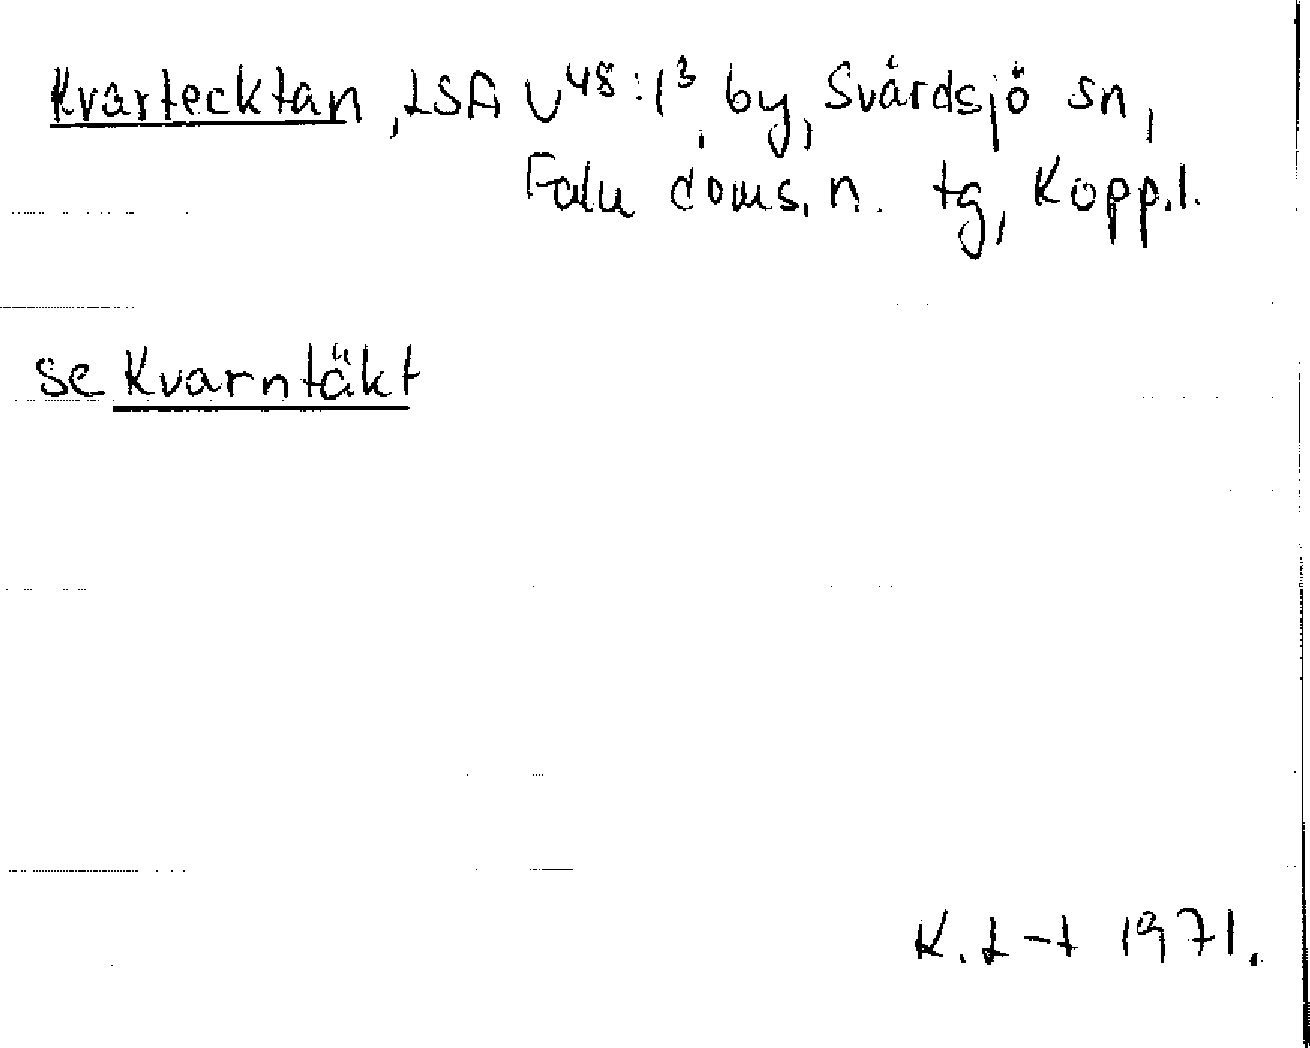 Kvartecktan, LSA U⁴⁸:1³, by, Svärdsjö sn,
Falu doms.n. tg, Kopp.l.
se Kvarntäkt
K. L-t 1971.